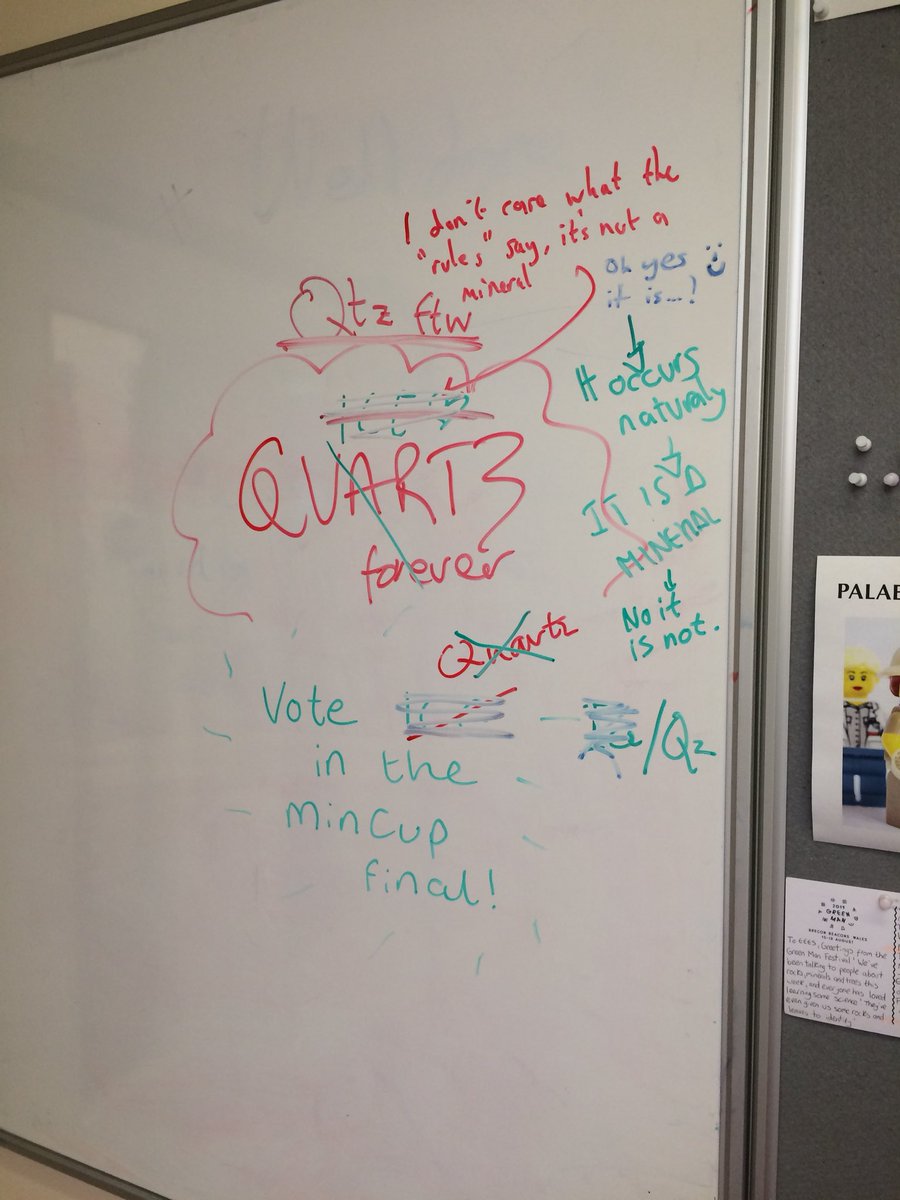 I don't care what the
"rules" say, it's not a
mineral
Oh yes
it is...!
Qtz ftw
It occurs
naturaly
IT IS A
MINERAL
No it
is not.
QUARTZ
forever
Quartz
Vote
/Qz
in the
MinCup
final!
PALAE
2015
GREEN
MAN
BRECON BEACONS WALES
To EEES, Greetings from the
Green Man Festival! We've
been talking to people about
rocks, minerals and trees this
week, and everyone has loved
learning some science! They've
even given us some rocks and
leaves to identify!